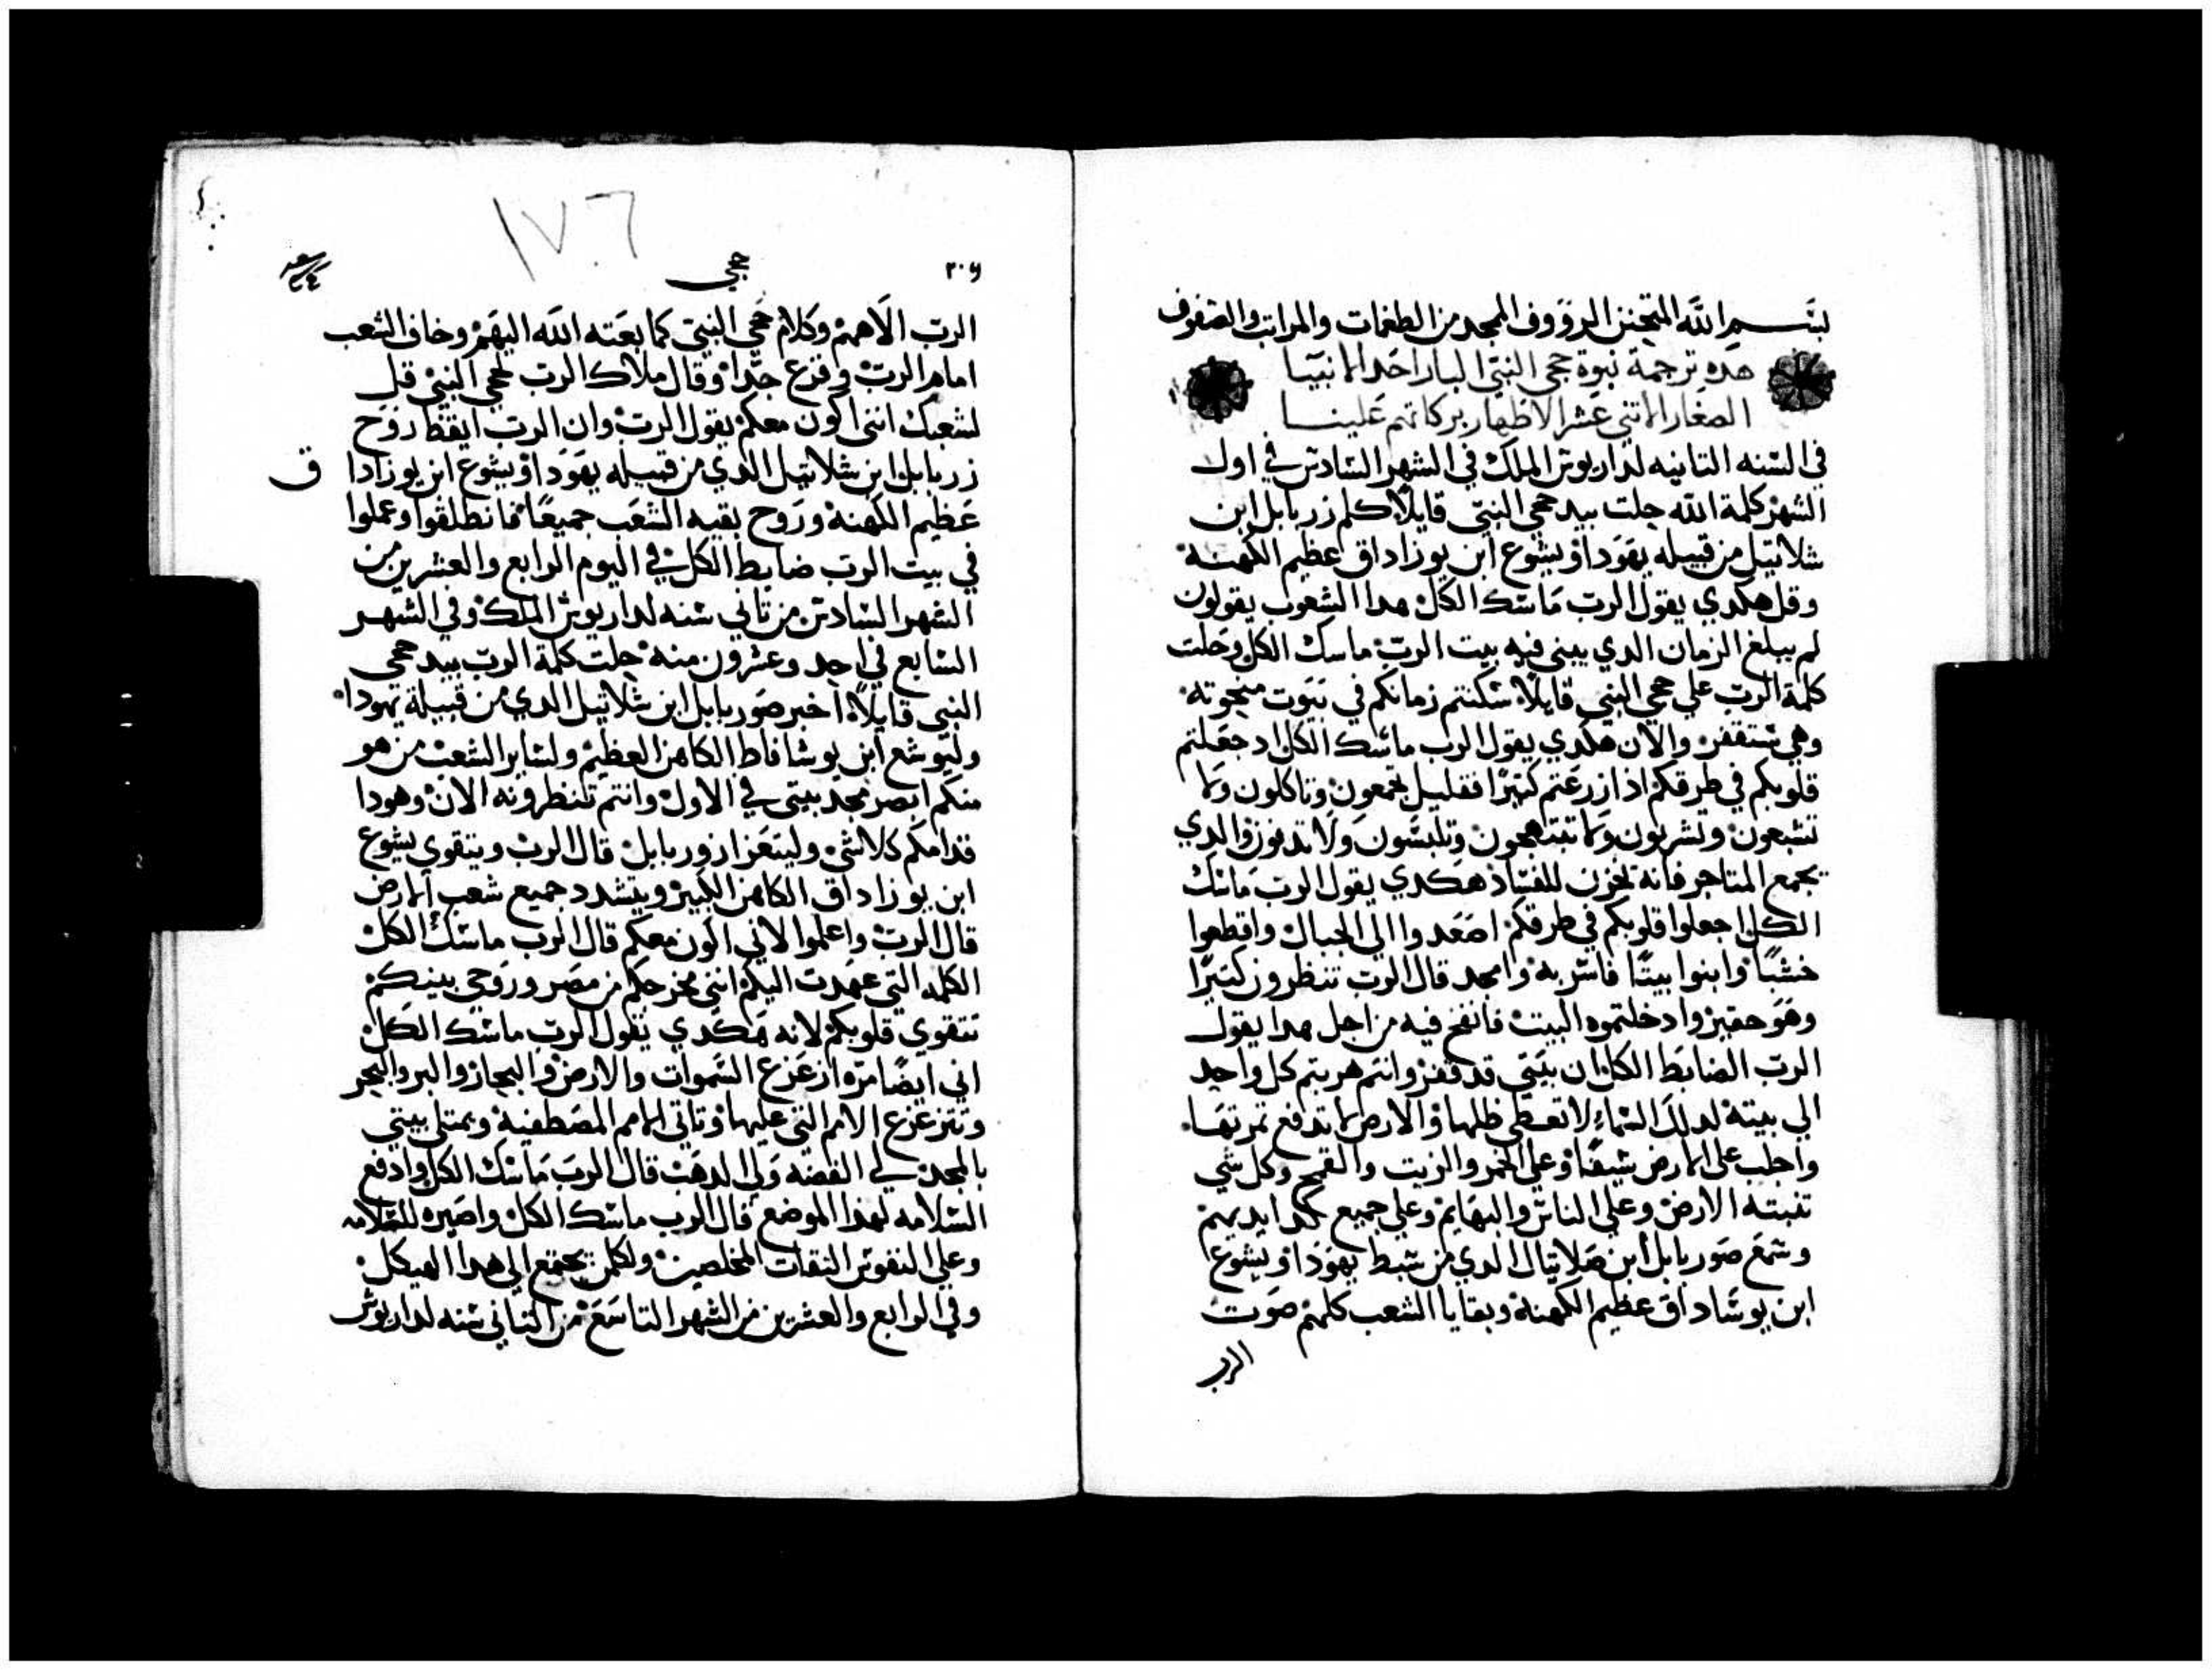 بسم الله المتحنن الرووف الممجد من الطغمات والمراتب والصفوف
هده ترجمة نبوة حجي النبي البار احد الانبيا
الصغار الاتني عشر الاطهار بركاتهم علينا
في السنه التانيه لداريوش الملك في الشهر السادس في اول
الشهر كلمة الله حلت بيد حجي النبي قايلا كلم زربابل ابن
شلاتيل من قبيله يهودا ويشوع ابن يوزاداق عظيم الكهنة
وقل هكدي يقول الرب ماسك الكل هدا الشعوب يقولون
لم يبلغ الزمان الدي يبني فيه بيت الرب ماسك الكل وحلت
كلمة الرب علي حجي النبي قايلا سكنتم زمانكم في بيوت منجوته
وهي ستقفر والان هكدي يقول الرب ماسك الكل اد جعلتم
قلوبكم في طرقكم اذا زرعتم كتيرا فقليل تجمعون وتاكلون ولا
تشبعون وتشربون ولا تبتهجون وتلبسون ولا تدفون والدي
يجمع المتاجر فانه يخزن للفساد هكدي يقول الرب ماسك
الكل اجعلوا قلوبكم في طرقكم اصعدوا الي الجبال واقطعوا
خشبا وابنوا بيتا فاسر به وامجد قال الرب تنظرون كتيرا
وهو حقير وادخلتموه البيت فانفخ فيه من اجل هدا يقول
الرب الضابط الكل ان بيتي قد قفر وانتم هربتم كل واحد
الي بيته لدلك السماء لا تعطي ظلها والارض لا تدفع تمرتها
واجلب علي الارض سيفا وعلي الخمر والزيت والقمح وكل شي
تنبته الارض وعلي الناس والبهايم وعلي جميع كد ايديهم
وسمع صوربابل ابن صلاتيال الدي من سبط يهودا ويشوع
ابن يوشاداق عظيم الكهنة وبقايا الشعب كلهم صوت
الرب
٢٠٦
حجي
١٧٦
الرب الاههم وكلام حجي النبي كما بعته الله اليهم وخاف الشعب
امام الرب وفزع جدا وقال ملاك الرب لحجي النبي قل
لشعبك انني اكون معكم يقول الرب وان الرب ايقظ روح
زربابل ابن شلاتيل الدي من قبيله يهودا ويشوع ابن يوزادا
ق
عظيم الكهنة وروح بقيه الشعب جميعا فانطلقوا وعملوا
في بيت الرب ضابط الكل في اليوم الرابع والعشرين من
الشهر السادس من تاني سنه لداريوش الملك وفي الشهر
السابع في احد وعشرون منه حلت كلمة الرب بيد حجي
النبي قايلا اخبر صوربابل ابن شلاتيل الدي من قبيلة يهودا
وليوشع ابن يوشافاط الكاهن العظيم ولساير الشعب من هو
منكم ابصر مجد بيتي في الاول وانتم تنظرونه الان وهودا
قدامكم كلاشي وليتعزا زوربابل قال الرب ويتقوي يشوع
ابن يوزاداق الكاهن الكبير ويتشدد جميع شعب الارض
قال الرب واعلموا لاني اكون معكم قال الرب ماسك الكل
الكلمه التي عهدت اليكم انني مخرجكم من مصر وروحي بينكم
تتقوي قلوبكم لانه هكدي يقول الرب ماسك الكل
اني ايضا مره ازعزع السموات والارض والبحار والبر والبحر
وتتزعزع الامم التي عليها وتاتي الامم المصطفيه ويمتلي بيتي
بالمجد لي الفضه ولي الدهب قال الرب ماسك الكل وادفع
السلامه لهدا الموضع قال الرب ماسك الكل واصيره للسلامه
وعلي النفوس التقات المخلصين ولكلمن يجتمع الي هدا الهيكل
وفي الرابع والعشرين من الشهر التاسع من التاني سنه لداريوش